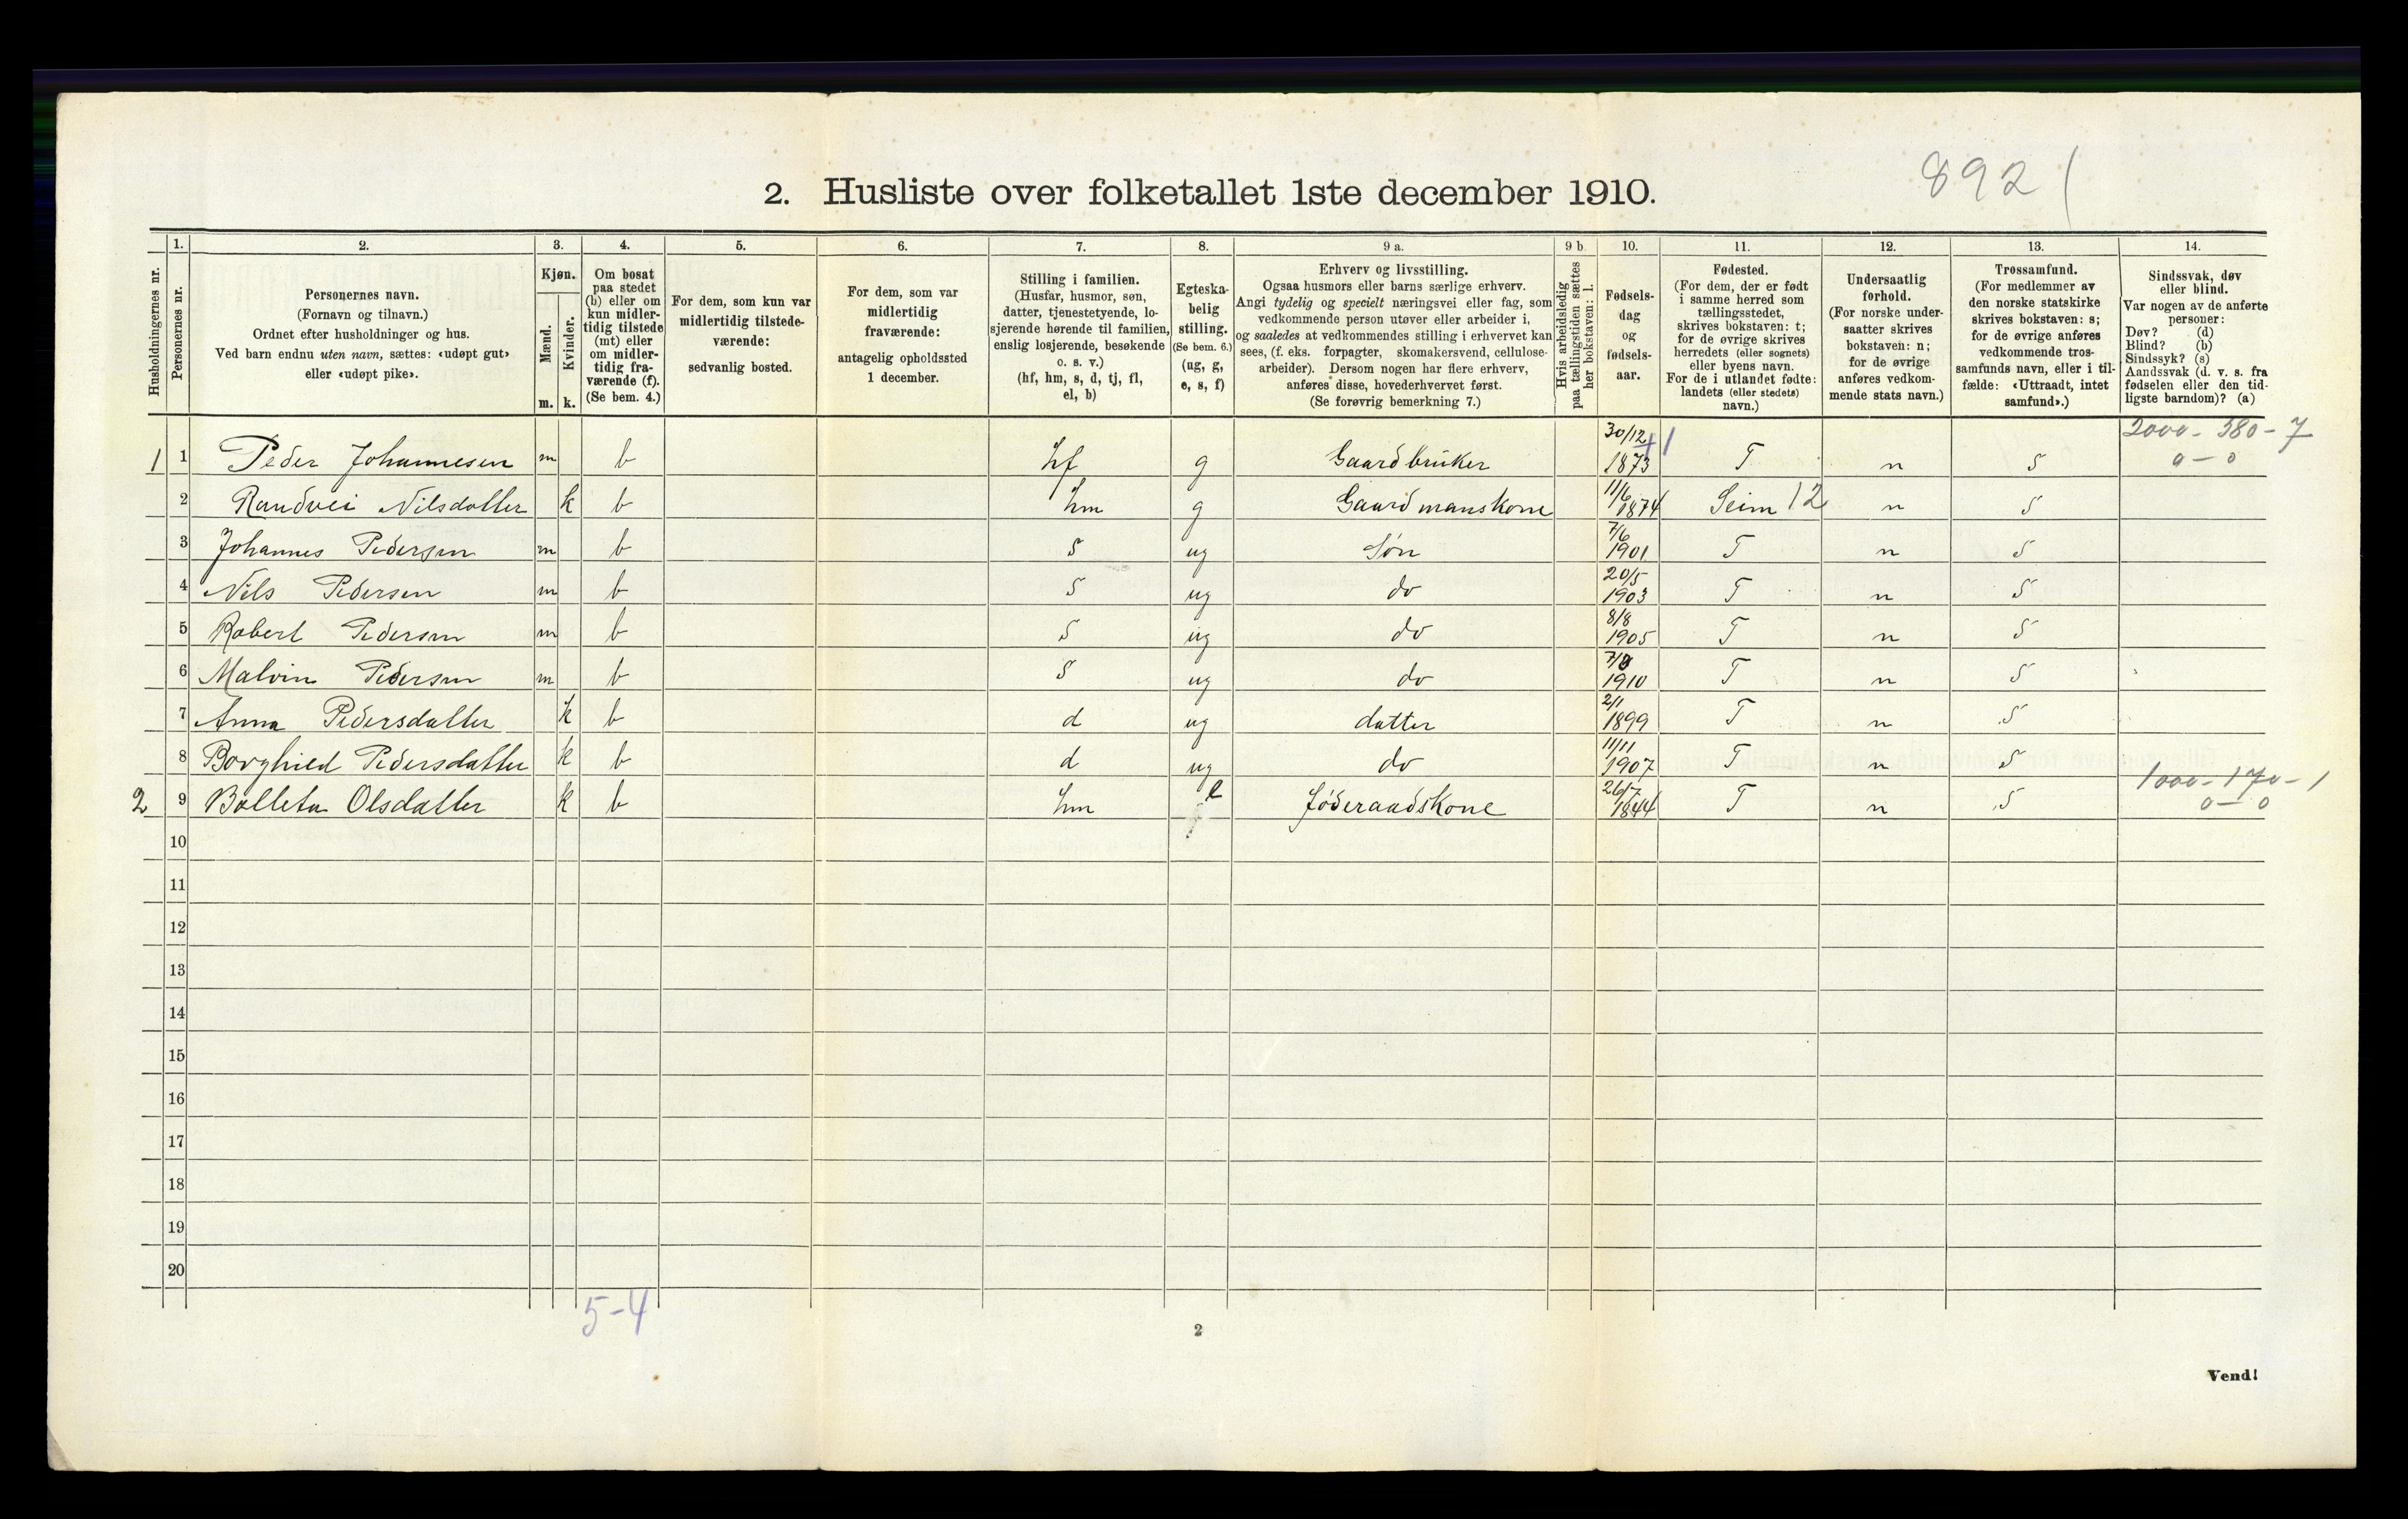 892 (
2. Husliste over folketallet 1ste december 1910.
Husholdningernes nr.
1. Personernes nr.
2. Personernes navn.
(Fornavn og tilnavn.)
Ordnet efter husholdninger og hus.
Ved barn endnu uten navn, sættes: «udøpt gut»
eller «udøpt pike».
3. Kjøn.
Mænd. m.
Kvinder. k.
4. Om bosat
paa stedet
(b) eller om
kun midler-
tidig tilstede
(mt) eller
om midler-
tidig fra-
værende (f).
(Se bem. 4.)
5. For dem, som kun var
midlertidig tilstede-
værende:
sedvanlig bosted.
6. For dem, som var
midlertidig
fraværende:
antagelig opholdssted
1 december.
7. Stilling i familien.
(Husfar, husmor, søn,
datter, tjenestetyende, lo-
sjerende hørende til familien,
enslig losjerende, besøkende
o. s. v.)
(hf, hm, s, d, tj, fl,
el, b)
8. Egteska-
belig
stilling.
(Se bem. 6.)
(ug, g,
e, s, f)
9 a. Erhverv og livsstilling.
Ogsaa husmors eller barns særlige erhverv.
Angi tydelig og specielt næringsvei eller fag, som
vedkommende person utøver eller arbeider i,
og saaledes at vedkommendes stilling i erhvervet kan
sees, (f. eks. forpagter, skomakersvend, cellulose-
arbeider). Dersom nogen har flere erhverv,
anføres disse, hovederhvervet først.
(Se forøvrig bemerkning 7.)
9 b Hvis arbeidsledig
paa tællingstiden sættes
her bokstaven: l.
10. Fødsels-
dag
og
fødsels-
aar.
11. Fødested.
(For dem, der er født
i samme herred som
tællingsstedet,
skrives bokstaven: t;
for de øvrige skrives
herredets (eller sognets)
eller byens navn.
For de i utlandet fødte:
landets (eller stedets)
navn.)
12. Undersaatlig
forhold.
(For norske under-
saatter skrives
bokstaven: n;
for de øvrige
anføres vedkom-
mende stats navn.)
13. Trossamfund.
(For medlemmer av
den norske statskirke
skrives bokstaven: s;
for de øvrige anføres
vedkommende tros-
samfunds navn, eller i til-
fælde: «Uttraadt, intet
samfund».)
14. Sindssvak, døv
eller blind.
Var nogen av de anførte
personer:
Døv? (d)
Blind? (b)
Sindssyk? (s)
Aandssvak (d. v. s. fra
fødselen eller den tid-
ligste barndom)? (a)
1 1 Peder Johannesen m b hf g Gaardbruker 30/12 1873 T n S 2000 - 580 - 7 0 - 0
2 Randvei Nilsdatter k b hm g Gaardmanskone 11/6 1874 Seim 12 n S
3 Johannes Pedersen m b S ug Søn 7/6 1901 T n S
4 Nils Pedersen m b S ug do 20/5 1903 T n S
5 Robert Pedersen m b S ug do 8/8 1905 T n S
6 Malvin Pedersen m b S ug do 1910 T n S
7 Anna Pedersdatter k b d ug datter 2/1 1899 T n S
8 Borghied Pedersdatter k b d ug do 11/11 1907 T n S
2 9 Bolleta Olsdatter k b hm e føderaadskone 26/7 1844 T n S 1000 - 170 - 1 0 - 0
10
11
12
13
14
15
16
17
18
19
20
5-4
2
Vend!